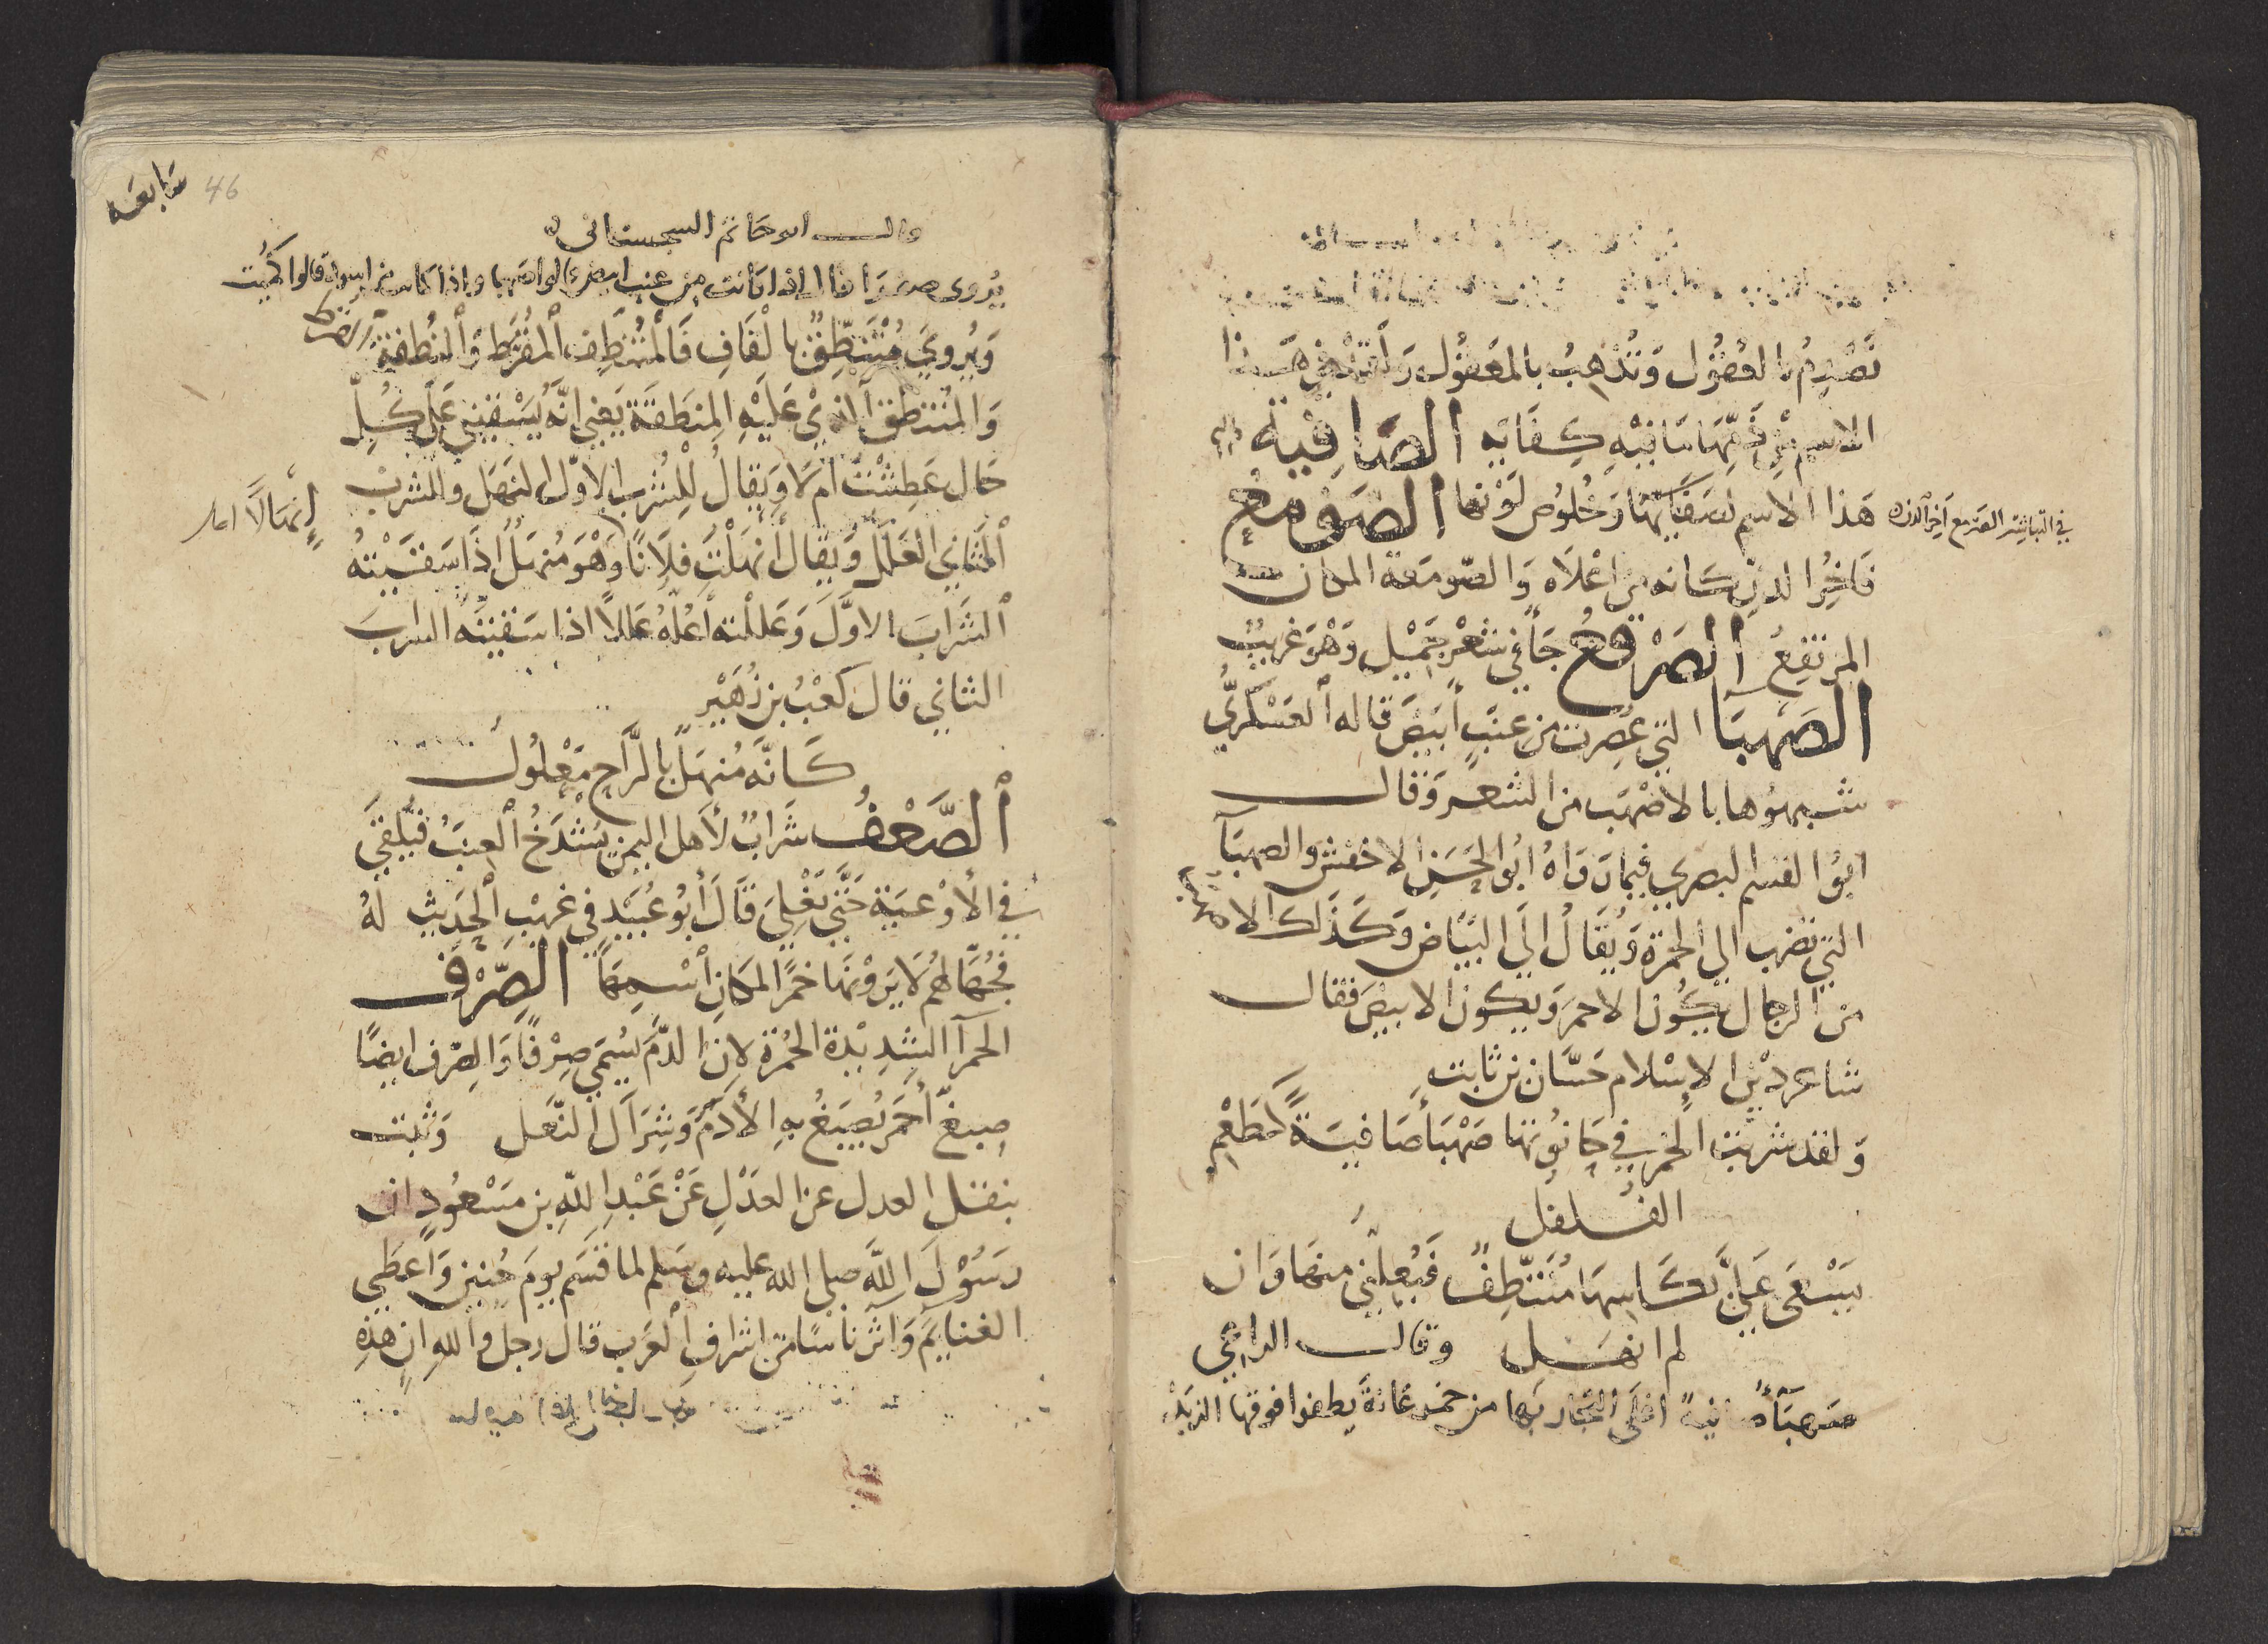 تصرم بالفضول وَتُذهِبُ بالمعقول وَلَقد هـذا
الاسم من ذمّها مَا فيْهِ كِفَايَه الصَافِيَة
هَذا الاسم لصَفَايهَا وَخُلُوصِ لَوْنها الصَومَع
في التباشير الصومع آخر الدن
فَاخِرُ الدن كانه من اعْلَاه وَالصّومَعة المكان
المرتفِعُ الصَرْقَع جَآ في شعْر جَمِيْل وَهْوَ غَريبُ
الصَهبَآ التي عُصِرت من عنَبٍ أبيَضَ قاله العَسْكَريُّ
شبهوُها بالاصْهَب من الشعَر وَقال
ابوُ القسم البصري فيما رَوَاهُ ابُو الحَسَن الاخفش والصهبَآ
التي تضرب الي الحمرة وَيُقَالُ الَى البَيَاض وَكَذَلك الاصهب
مْن الرجال يكُون الاحمرَ وَيكون الابيضَ فقال
شاعر ديْن الإسْلام حَسَّان بن ثابت
وَلقد شربت الخمر في حَانُوتها صَهْبَأ صَافيَةً كَطَعْم
الفلفل
يَسْعَى عَلَيَّ بكَاسِهَا مُتَنَطِّفٌ فَيُعِلّني منهَا وَان
لم انهَـل وقال الراعي
صَهبَآءُ صافيةً اغلَى التجَار بَها من خمر عَانةَ يطفوا فوقها الزبَدُ
46
سَابعَه
وقال ابو حَاتم السجستاني
يُروى صرفا قال اذا كانت من عنب ابيض قالوا صَهبا واذا كانت من اسود قالوا كُمَيت
وَيُروي مُتَنَطِّفٌ بالقَافِ فَالمُتَنَطِّف المقَرَّط وَالنُطفة القرط
وَالمُنتَطِق الذيْ عَلَيْهِ المِنْطَقَة يَعني انَّه يَسْقيني عَلَى كُلِّ
حَال عَطِشْتُ امْ لَا وَيقالُ للشُرب الاوّل النهَل والشرب
الثاني العَلَل وَيقال أنهَلْت فلاَنًا وَهْوَ مُنهَلُ اذا سَقَيْتهُ
إنْهَالًا
الشَرَابَ الاوَّلَ وَعَللْته أعُلّهُ عَلَلًا اذا سَقيْتَه الشرابَ
الثاني قال كعْبُ بن زُهَيْر
كَانَّهَ مُنهَلٌ بالرَّاحِ مَعْلُول
الصَّعْفُ شَرَابٌ لأهل اليمن يُشْدَخُ العِنبُ فيُلقَي
في الأوْعيَة حَتَّي تَغْلِيَ قَالَ أبُو عُبَيْد في غريْب الحَديث لهُ
فجُهَّالهُمْ لَا يَروْنَها خمرًا لمكانِ أسْمهَا الصِّرْف
الحمرآ الشديْدة الحُمْرَة لان الدّمَ يُسَمّي صِرْفًا وَالصِرف ايضًا
صِبغٌ أحمَرُ يُصبَغُ به الأدَمُ وَشِرَاك النَّعل وَثبت
بنقل العدل عن العَدْلِ عَنْ عَبْدِ اللهِ بن مَسْعُودٍ ان
رَسُوْلَ اللَّهِ صلى الله عليه وسَلم لما قَسَم يوَم حُنين وَاعطى
الغنايم وَاثر نَاسًا من اشراف العرَب قال رجل وَاللهِ ان هذِهِ